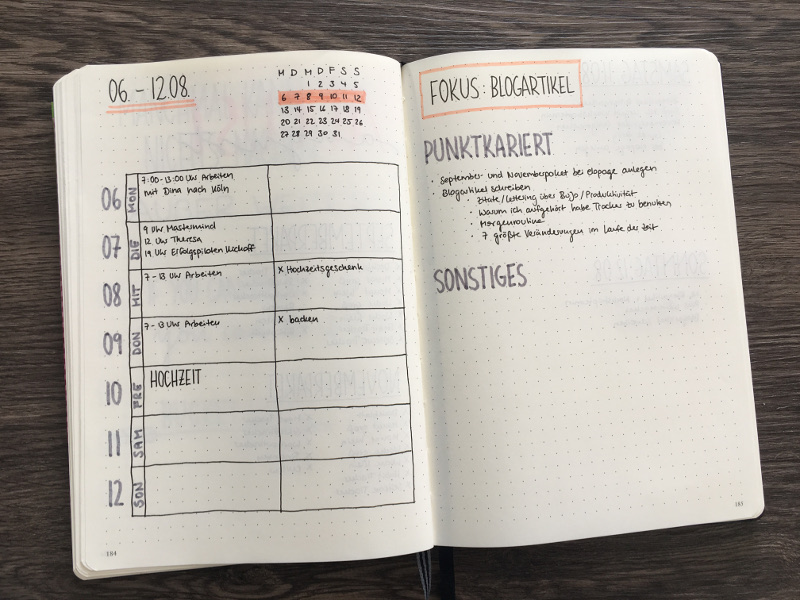 06. - 12.08.
M D M D F S S
1 2 3 4 5
6 7 8 9 10 11 12
13 14 15 16 17 18 19
20 21 22 23 24 25 26
27 28 29 30 31
06 MON
7:00-13:00 Uhr Arbeiten
mit Dina nach Köln
07 DIE
9 Uhr Mastermind
12 Uhr Theresa
19 Uhr Erfolgspiloten
08 MIT
7-13 Uhr Arbeiten
x Hochzeitsgeschenk
09 DON
7-13 Uhr Arbeiten
x backen
10 FRE
HOCHZEIT
11 SAM
12 SON
184
FOKUS: BLOGARTIKEL
PUNKTKARIERT
· September- und Novemberpaket bei elopage anlegen
Blogartikel schreiben
· Zitate/Lettering über BuJo/Produktivität
· Warum ich aufgehört habe Tracker zu benutzen
· Morgenroutine
· 7 größte Veränderungen im Laufe der Zeit
SONSTIGES